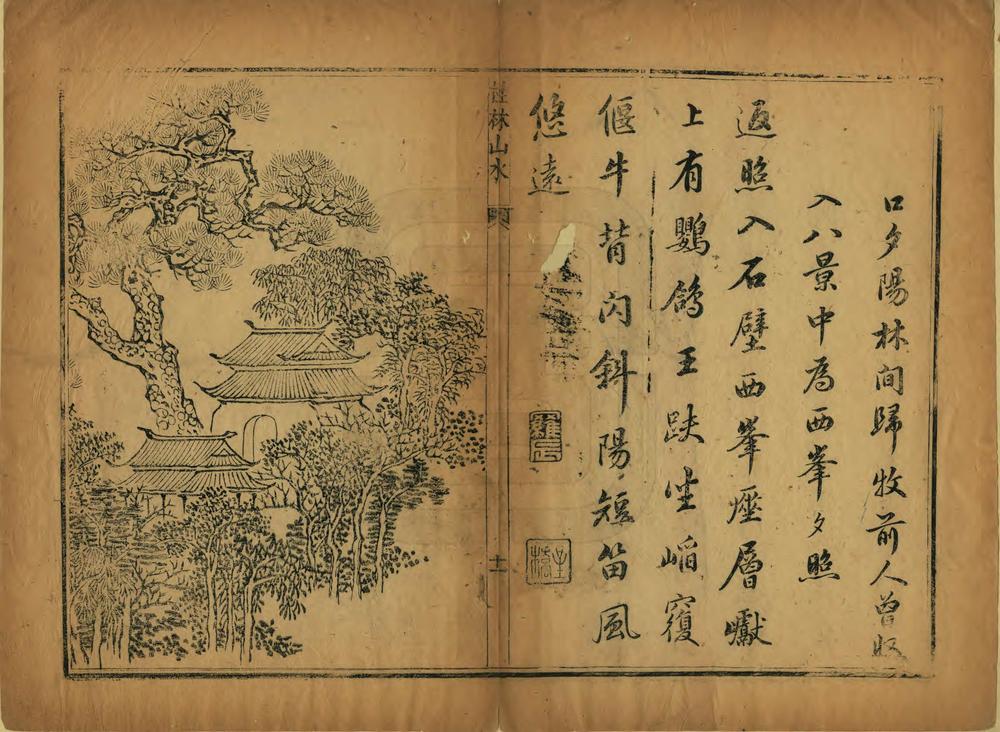 口夕陽林間歸牧前人曾收
入八景中為西峯夕照
返照入石壁西峯煙層巘
上有鸚鴿王趺坐嵧
偃牛背內斜陽短笛風
悠遠
桂林山水
十一